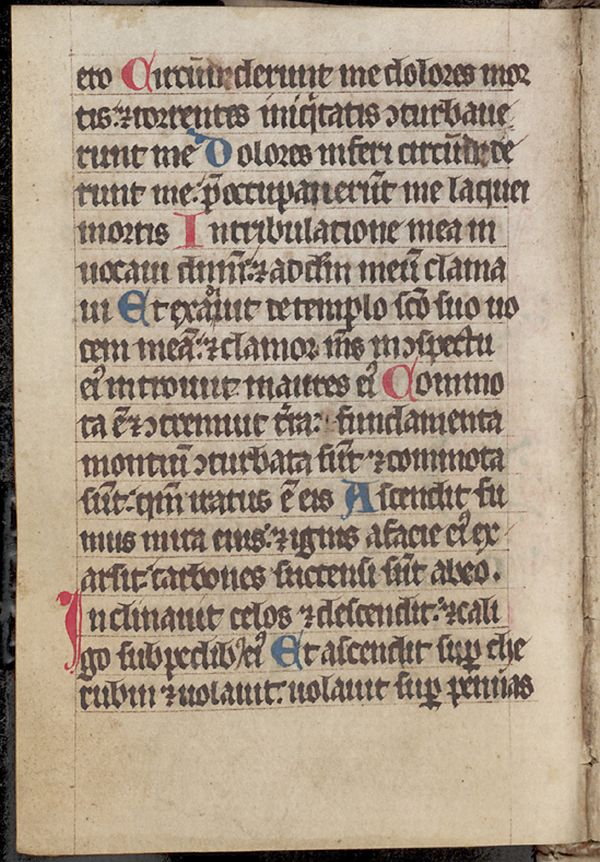 ero Circūdederunt me dolores mor
tis: ⁊ torrentes iniq̇tatis ɔturbaue
runt me Dolores inferi circūdede
runt me: p̄occupauerūt me laquei
mortis In tribulatione mea in
uocaui dnm̄: ⁊ ad dm̄ meū clama
ui Et exauiuit de templo sc̄o suo uo
cem meā: ⁊ clamor ms̄ in ɔspectu
eiꝰ introiuit in aures eiꝰ Commo
ta ē ⁊ ɔtremuit tr̄ra: fundamenta
montiū ɔturbata sūt ⁊ commota
sūt: qm̄ iratus ē eis Ascendit fu
mus in ira eius: ⁊ ignis a facie eiꝰ ex
arsit carbones succensi sūt ab eo.
Inclinauit celos ⁊ descendit: ⁊ cali
go sub pedibꝰ eiꝰ Et ascendit suꝑ che
rubin ⁊ uolauit: uolauit suꝑ pennas